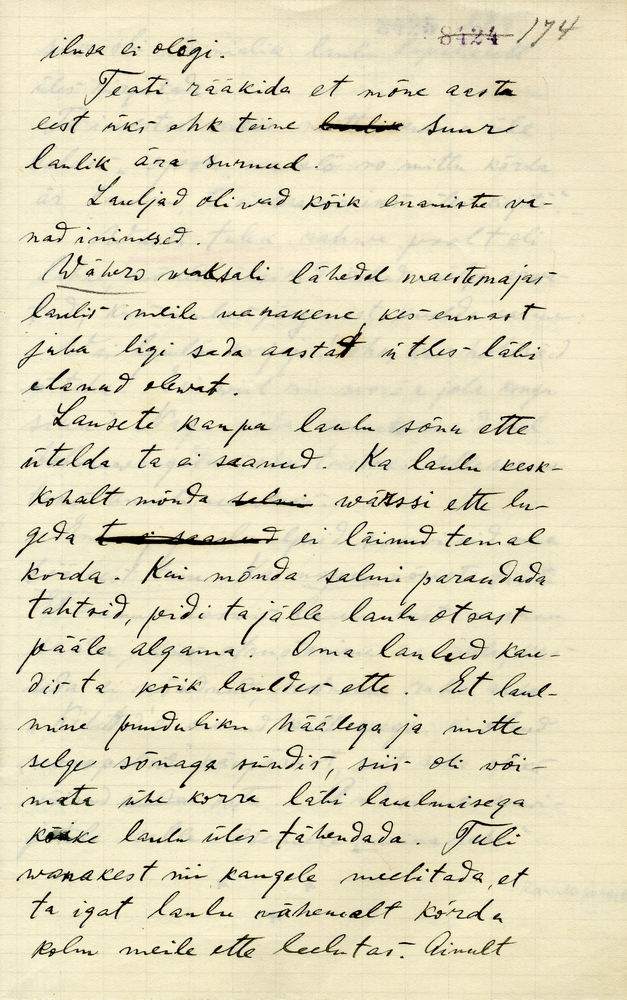 8424 174
ilusa ei olegi.
Teati rääkida et mõne aasta
eest üks ehk teine laulik suur
laulik ära surnud.
Lauljad oliwad kõik enamiste va-
nad inimesed.
Wähero waksali lähedel waestemajas
laulis meile vanakene, kes ennast
juba ligi sada aastat ütles läbi
elanud olewat.
Lausete kaupa laulu sõnu ette
ütelda ta ei saanud. Ka laulu kesk-
kohalt mõnda salmi wärssi ette lu-
geda ta ei saanud ei läinud temal
korda. Kui mõnda salmi parandada
tahtsid, pidi ta jälle laulu otsast
pääle algama. Oma laulud kan-
dis ta kõik lauldes ette. Et laul-
mine puuduliku häälega ja mitte
selge sõnaga sündis, siis oli või-
mata ühe korra läbi laulmisega
kõike laulu üles tähendada. Tuli
wanakest nii kaugele meelitada, et
ta igat laulu vähemalt kõrda
kolm meile ette leelutas. Ainult